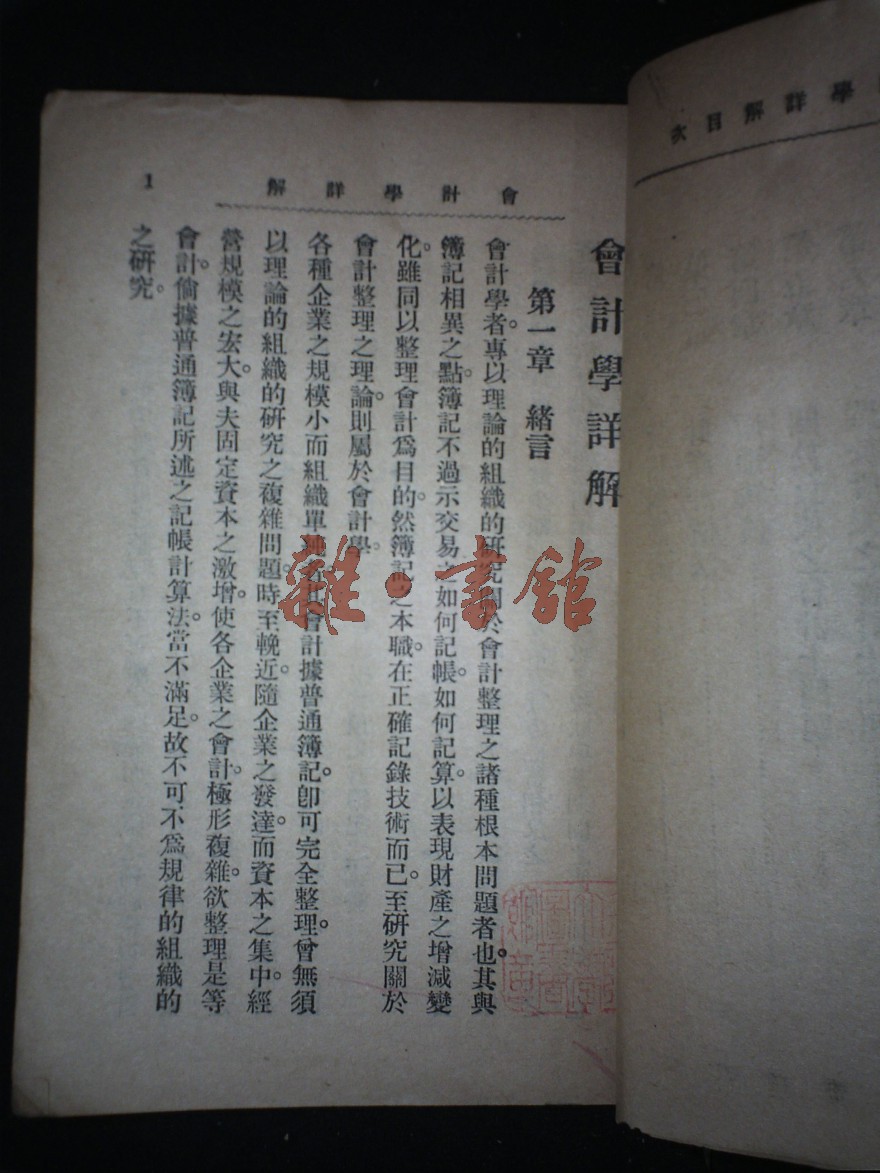 次目解詳學
解詳學計會
1
會計學詳解
第一章 緒言
會計學者。專以理論的組織的研究關於會計整理之諸種根本問題者也。其與
簿記相異之點。簿記不過示交易之如何記帳。如何記算。以表現財產之增減變
化。雖同以整理會計爲目的。然簿記之本職。在正確記錄技術而已。至研究關於
會計整理之理論。則屬於會計學。
各種企業之規模小而組織單 會計據普通簿記。卽可完全整理。曾無須
以理論的組織的研究之複雜問題。時至輓近。隨企業之發達。而資本之集中。經
營規模之宏大。與夫固定資本之激增。使各企業之會計。極形複雜。欲整理是等
會計。倘據普通簿記所述之記帳計算法。當不滿足。故不可不爲規律的組織的
之研究。
雜·書館